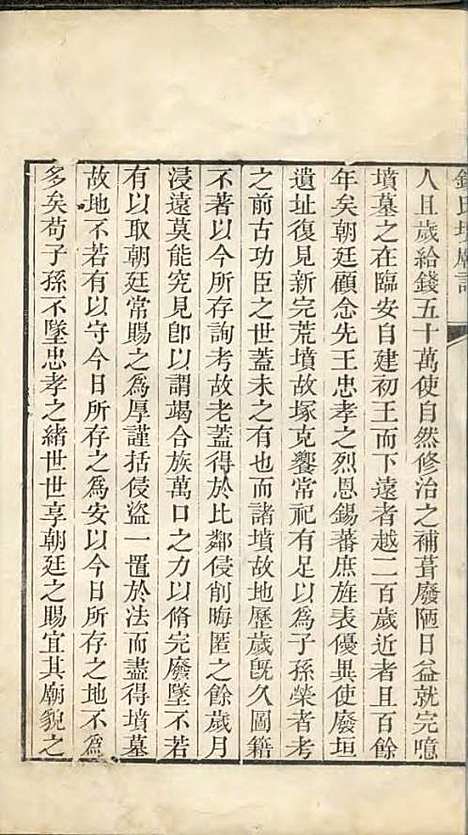 錢氏墳廟記
人且歲給錢五十萬使自然修治之補葺廢陋日益就完噫
墳墓之在臨安自建初王而下遠者越二百歲近者且百餘
年矣朝廷顧念先王忠孝之烈恩錫蕃庶旌表優異使廢垣
遺址復見新完荒墳故塚克饗常祀有足以為子孫榮者考
之前古功臣之世蓋未之有也而諸墳故地歷歲旣久圖籍
不著以今所存詢考故老蓋得於比鄰侵削晦匿之餘歲月
浸遠莫能究見卽以謂竭合族萬口之力以脩完廢墜不若
有以取朝廷常賜之為厚謹括侵盜一置於法而盡得墳墓
故地不若有以守今日所存之為安以今日所存之地不為
多矣苟子孫不墜忠孝之緒世世享朝廷之賜宜其廟貌之